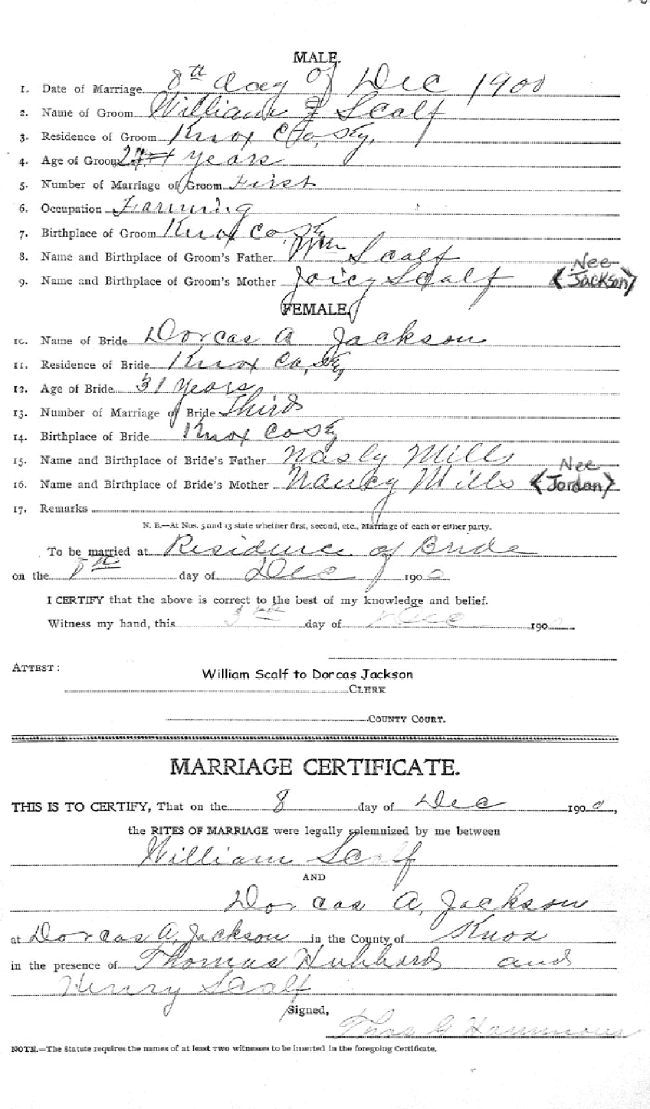 MALE.
1. Date of Marriage 8th day of Dec 1900
2. Name of Groom William F Scalf
3. Residence of Groom Knox Co, Ky,
4. Age of Groom years
5. Number of Marriage of Groom First
6. Occupation Farming
7. Birthplace of Groom Knox Co, Ky
8. Name and Birthplace of Groom's Father Wm Scalf
9. Name and Birthplace of Groom's Mother Joicy Scalf (Nee Jackson)
FEMALE.
10. Name of Bride Dorcas A Jackson
11. Residence of Bride Knox Co, Ky
12. Age of Bride 31 years
13. Number of Marriage of Bride Third
14. Birthplace of Bride Knox Co Ky
15. Name and Birthplace of Bride's Father Nasly Mills
16. Name and Birthplace of Bride's Mother Nancy Mills (Nee Jordan)
17. Remarks
N. B.—At Nos. 5 and 13 state whether first, second, etc., Marriage of each or either party.
To be married at Residence of Bride
on the 8th day of Dec 1900
I CERTIFY that the above is correct to the best of my knowledge and belief.
Witness my hand, this day of Dec 190
ATTEST:
William Scalf to Dorcas Jackson
CLERK
COUNTY COURT.
MARRIAGE CERTIFICATE.
THIS IS TO CERTIFY, That on the 8 day of Dec 1900,
the RITES OF MARRIAGE were legally solemnized by me between
William Scalf
AND
Dorcas A, Jackson
at Dorcas A, Jackson in the County of Knox
in the presence of Thomas Hubbard and
Henry Scalf
Signed,
Thos G Hammons
NOTE.—The Statute requires the names of at least two witnesses to be inserted in the foregoing Certificate.